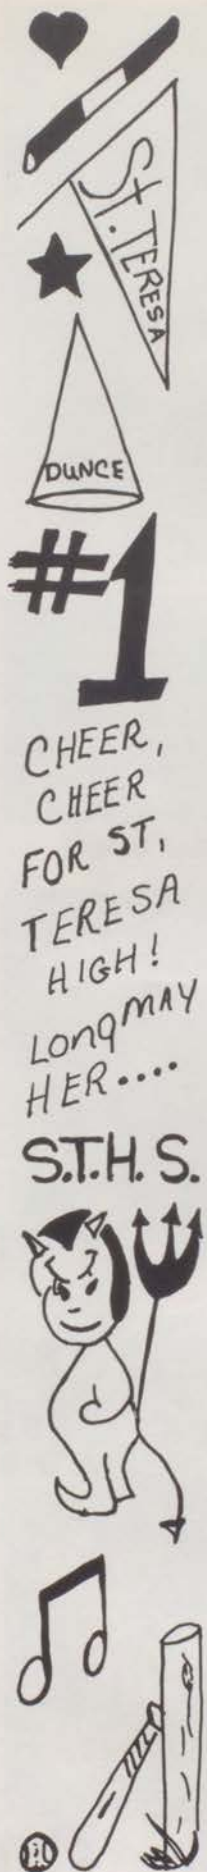 St. TERESA
DUNCE
#1
CHEER,
CHEER
FOR ST,
TERESA
HIGH!
LONG MAY
HER....
S.T.H.S.